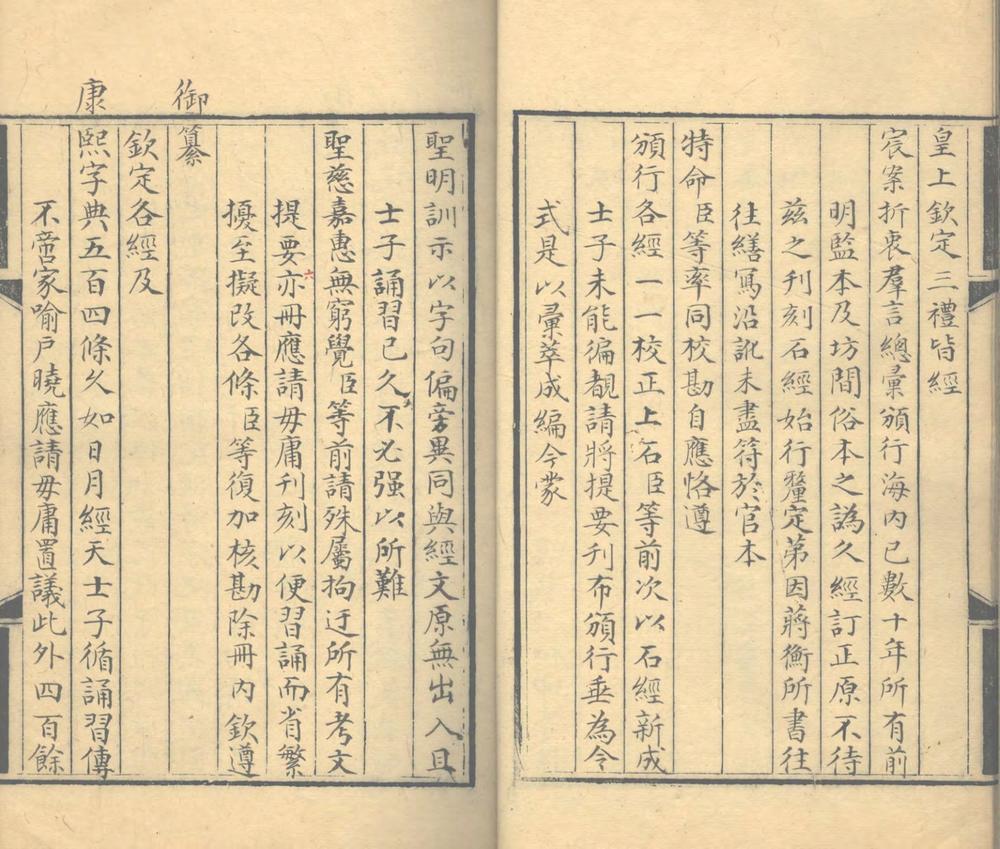 皇上欽定三禮皆經
宸案折衷羣言總彙頒行海內已數十年所有前
明監本及坊間俗本之譌久經訂正原不待
茲之刊刻石經始行釐定第因蔣衡所書往
往繕寫沿訛未盡符於官本
特命臣等率同校勘自應恪遵
頒行各經一一校正上石臣等前次以石經新成
士子未能徧覩請將提要刊布頒行垂為令
式是以彚萃成編今蒙
聖明訓示以字句偏旁異同與經文原無出入且
士子誦習已久不必强以所難
聖慈嘉惠無窮覺臣等前請殊屬拘迂所有考文
提要亦冊應請毋庸刊刻以便習誦而省繁
六
擾至擬改各條臣等復加核勘除冊內欽遵
御纂
欽定各經及
康熙字典五百四條久如日月經天士子循誦習傳
不啻家喻戶曉應請毋庸置議此外四百餘